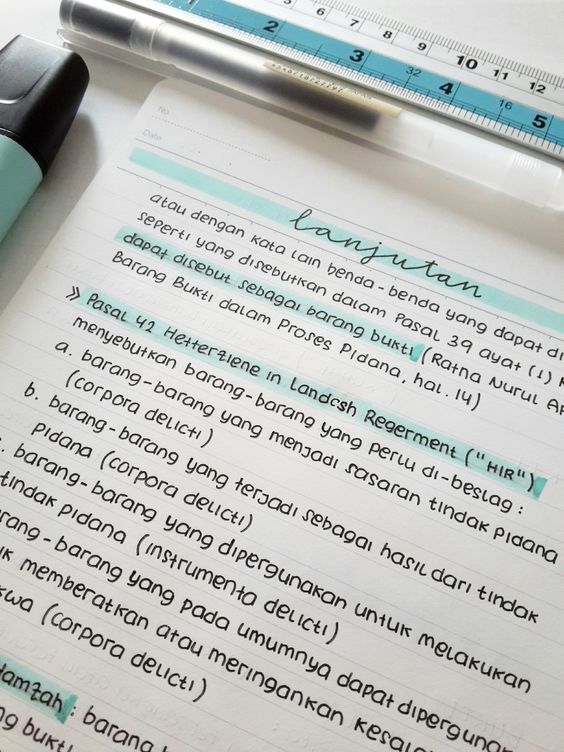 5 6 7 8 9 10 11 12
2 3 32 4 16 5
No.
Date
lanjutan
atau dengan kata lain benda-benda yang dapat di
seperti yang disebutkan dalam Pasal 39 ayat (1) K
dapat disebut sebagai barang bukti (Ratna Nurul AF
Barang Bukti dalam Proses Pidana, hal. 14)
» Pasal 42 Hetterziene in Landesh Regerment ("HIR")
menyebutkan barang-barang yang perlu di-beslag:
a. barang-barang yang menjadi sasaran tindak pidana
(corpora delicti)
b. barang-barang yang terjadi sebagai hasil dari tindak
pidana (corpora delicti)
c. barang-barang yang dipergunakan untuk melakukan
tindak pidana (instrumenta delicti)
rang-barang yang pada umumnya dapat dipergunak
uk memberatkan atau meringankan kesala
kwa (corpora delicti)
Hamzah: barang b
ng bukti